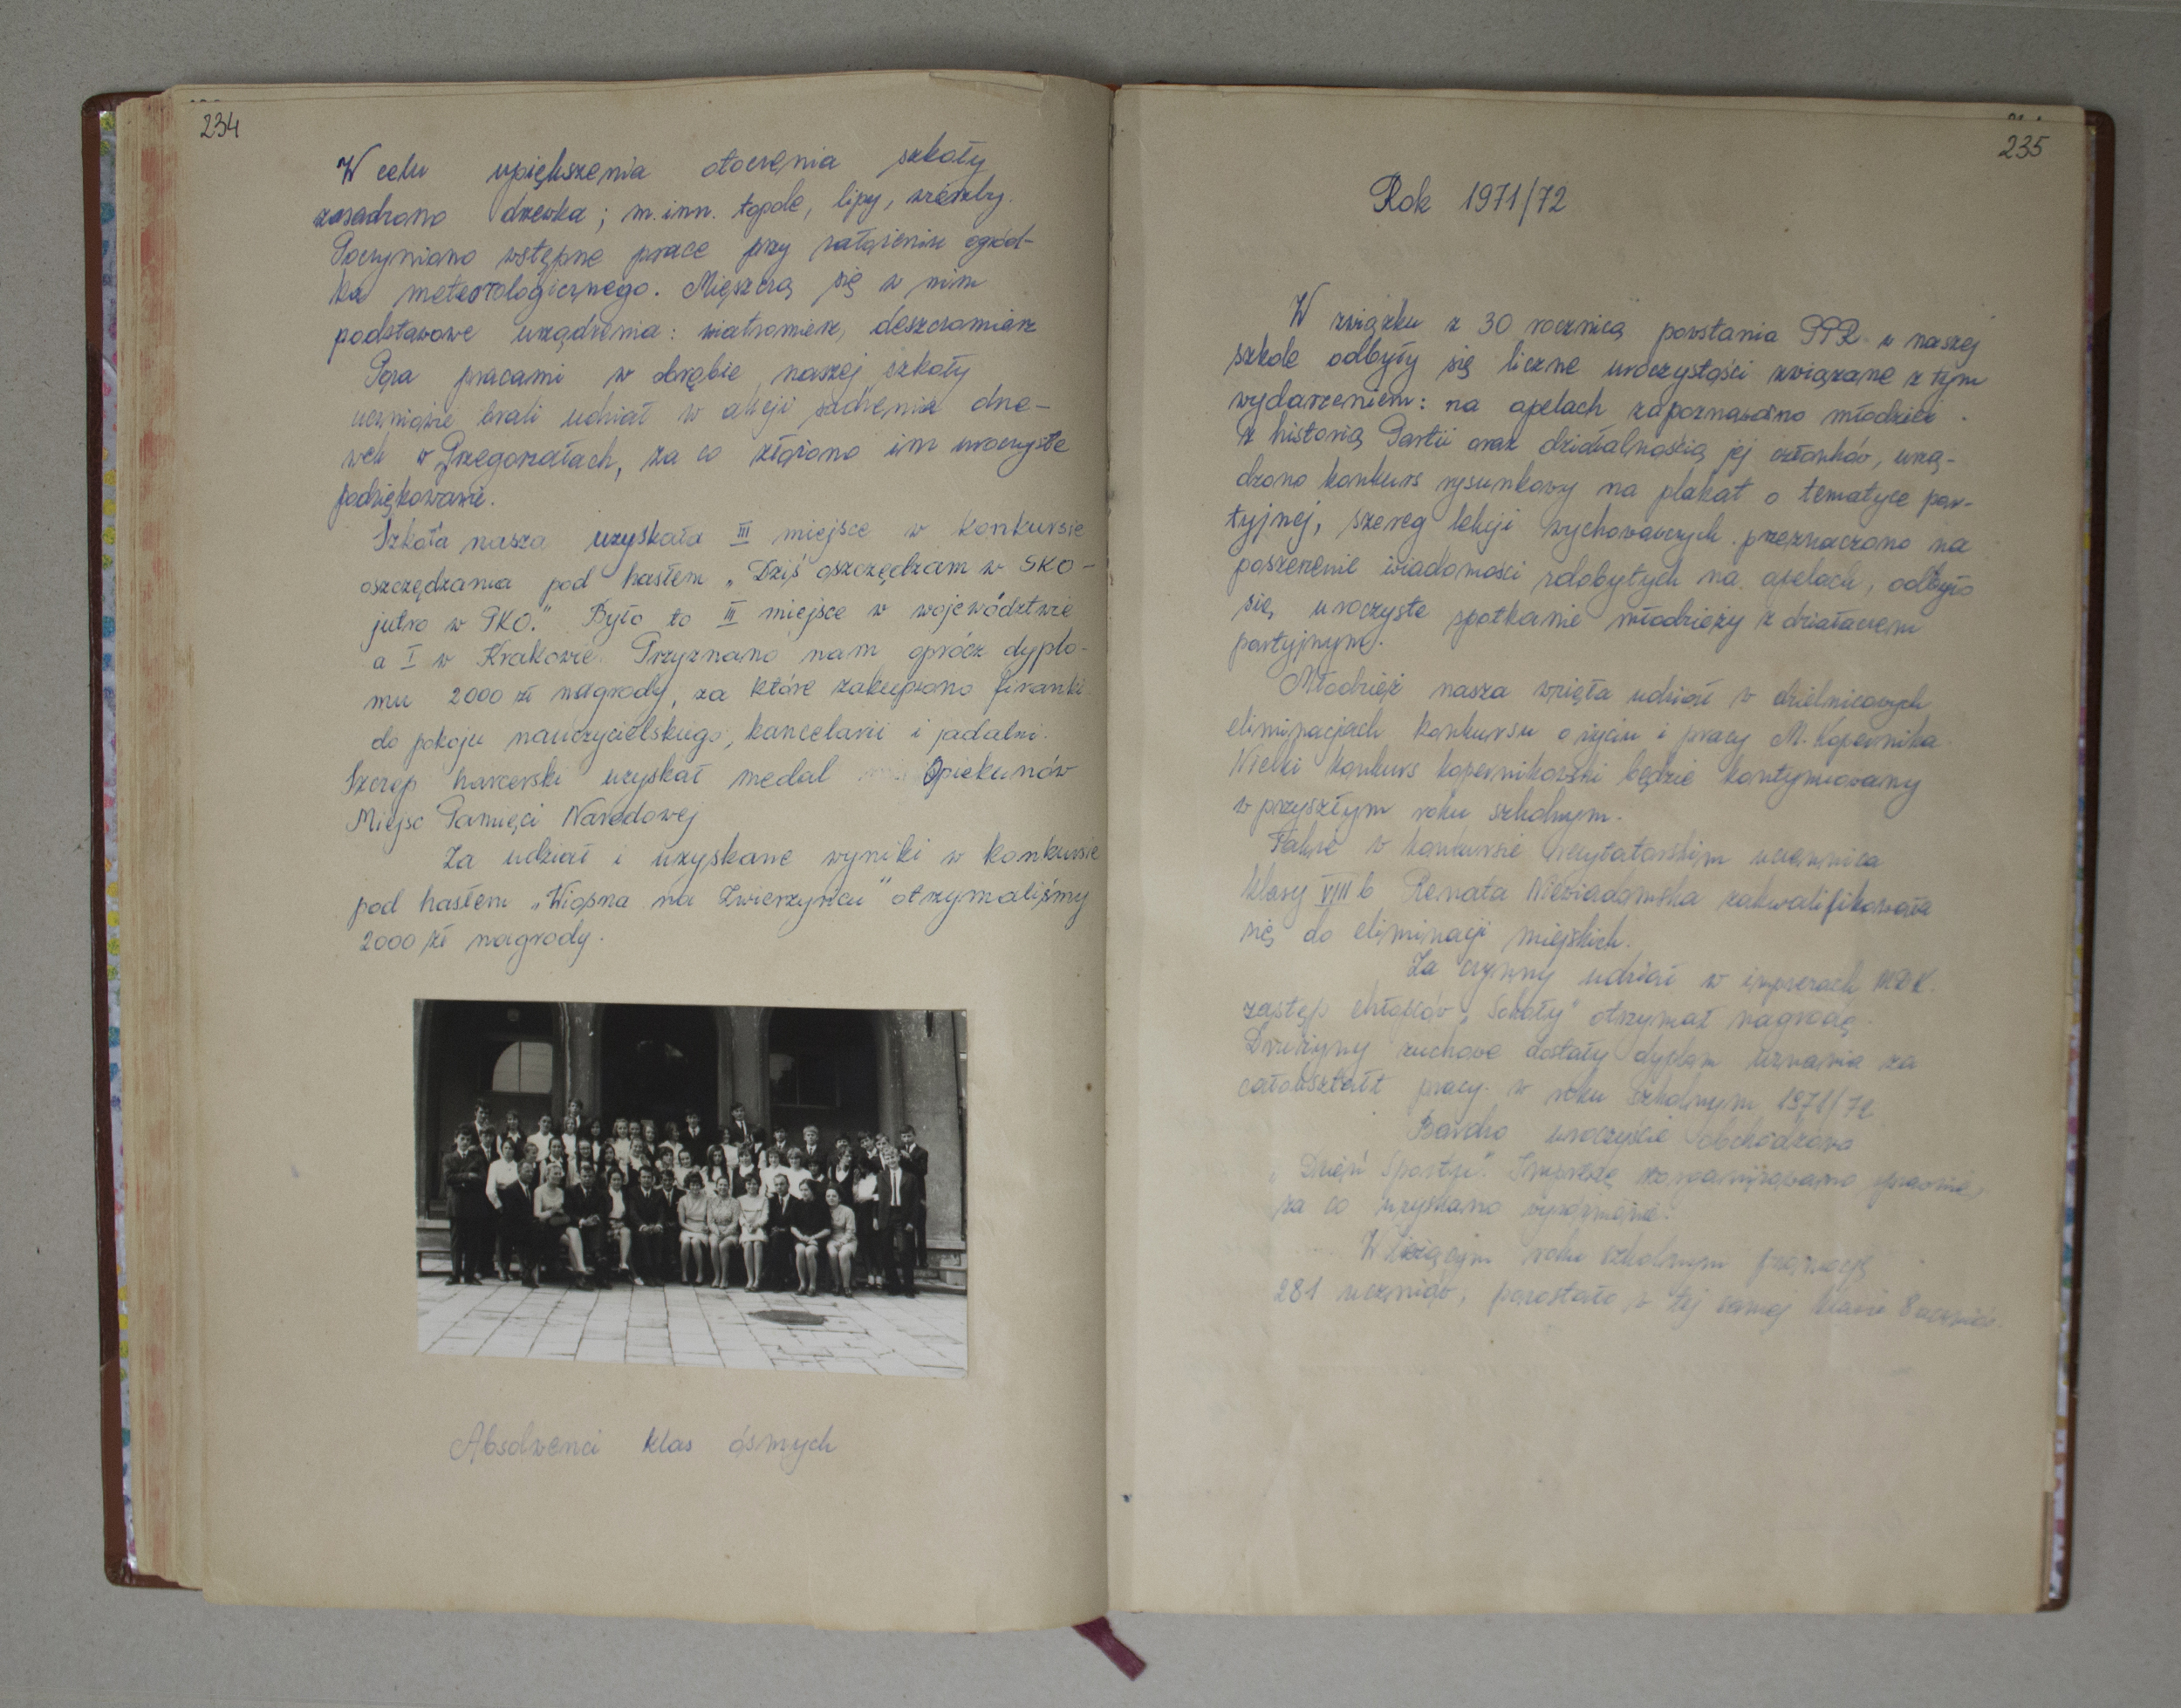 234
W celu upiększenia otoczenia szkoły
zasadzono drzewka; m.inn. topole, lipy, wierzby.
Poczyniono wstępne prace przy założeniu ogród-
ka meteorologicznego. Mieszczą się w nim
podstawowe urządzenia: wiatromierz, deszczomierz
Poza pracami w obrębie naszej szkoły
uczniowie brali udział w akcji sadzenia drze-
wek w Przegorzałach, za co złożono im uroczyste
podziękowanie.
Szkoła nasza uzyskała III miejsce w konkursie
oszczędzania pod hasłem „Dziś oszczędzam w SKO -
jutro w PKO." Było to III miejsce w województwie
a I w Krakowie. Przyznano nam oprócz dyplo-
mu 2000 zł nagrody, za które zakupiono firanki
do pokoju nauczycielskiego, kancelarii i jadalni.
Szczep harcerski uzyskał medal Opiekunów
Miejsc Pamięci Narodowej
Za udział i uzyskane wyniki w konkursie
pod hasłem „Wiosna na Zwierzyńcu" otrzymaliśmy
2000 zł nagrody.
Absolwenci klas ósmych
235
Rok 1971/72
W związku z 30 rocznicą powstania PPR w naszej
szkole odbyły się liczne uroczystości związane z tym
wydarzeniem: na apelach zapoznawano młodzież
z historią Partii oraz działalnością jej członków, urzą-
dzono konkurs rysunkowy na plakat o tematyce par-
tyjnej, szereg lekcji wychowawczych przeznaczono na
poszerzenie wiadomości zdobytych na apelach, odbyło
się uroczyste spotkanie młodzieży z działaczem
partyjnym.
Młodzież nasza wzięła udział w dzielnicowych
eliminacjach konkursu o życiu i pracy M. Kopernika.
Wielki konkurs kopernikowski będzie kontynuowany
w przyszłym roku szkolnym.
Także w konkursie recytatorskim uczennica
klasy VIII b Renata Niewiadomska zakwalifikowała
się do eliminacji miejskich.
Za czynny udział w imprezach MDK.
zastęp chłopców „Sokoły" otrzymał nagrodę.
Drużyny zuchowe dostały dyplom uznania za
całokształt pracy w roku szkolnym 1971/72
Bardzo uroczyście obchodzono
„Dzień Sportu". Imprezę zorganizowano sprawnie,
za co uzyskano wyróżnienie.
W bieżącym roku szkolnym promocję
281 uczniów, pozostało w tej samej klasie 8 uczniów.